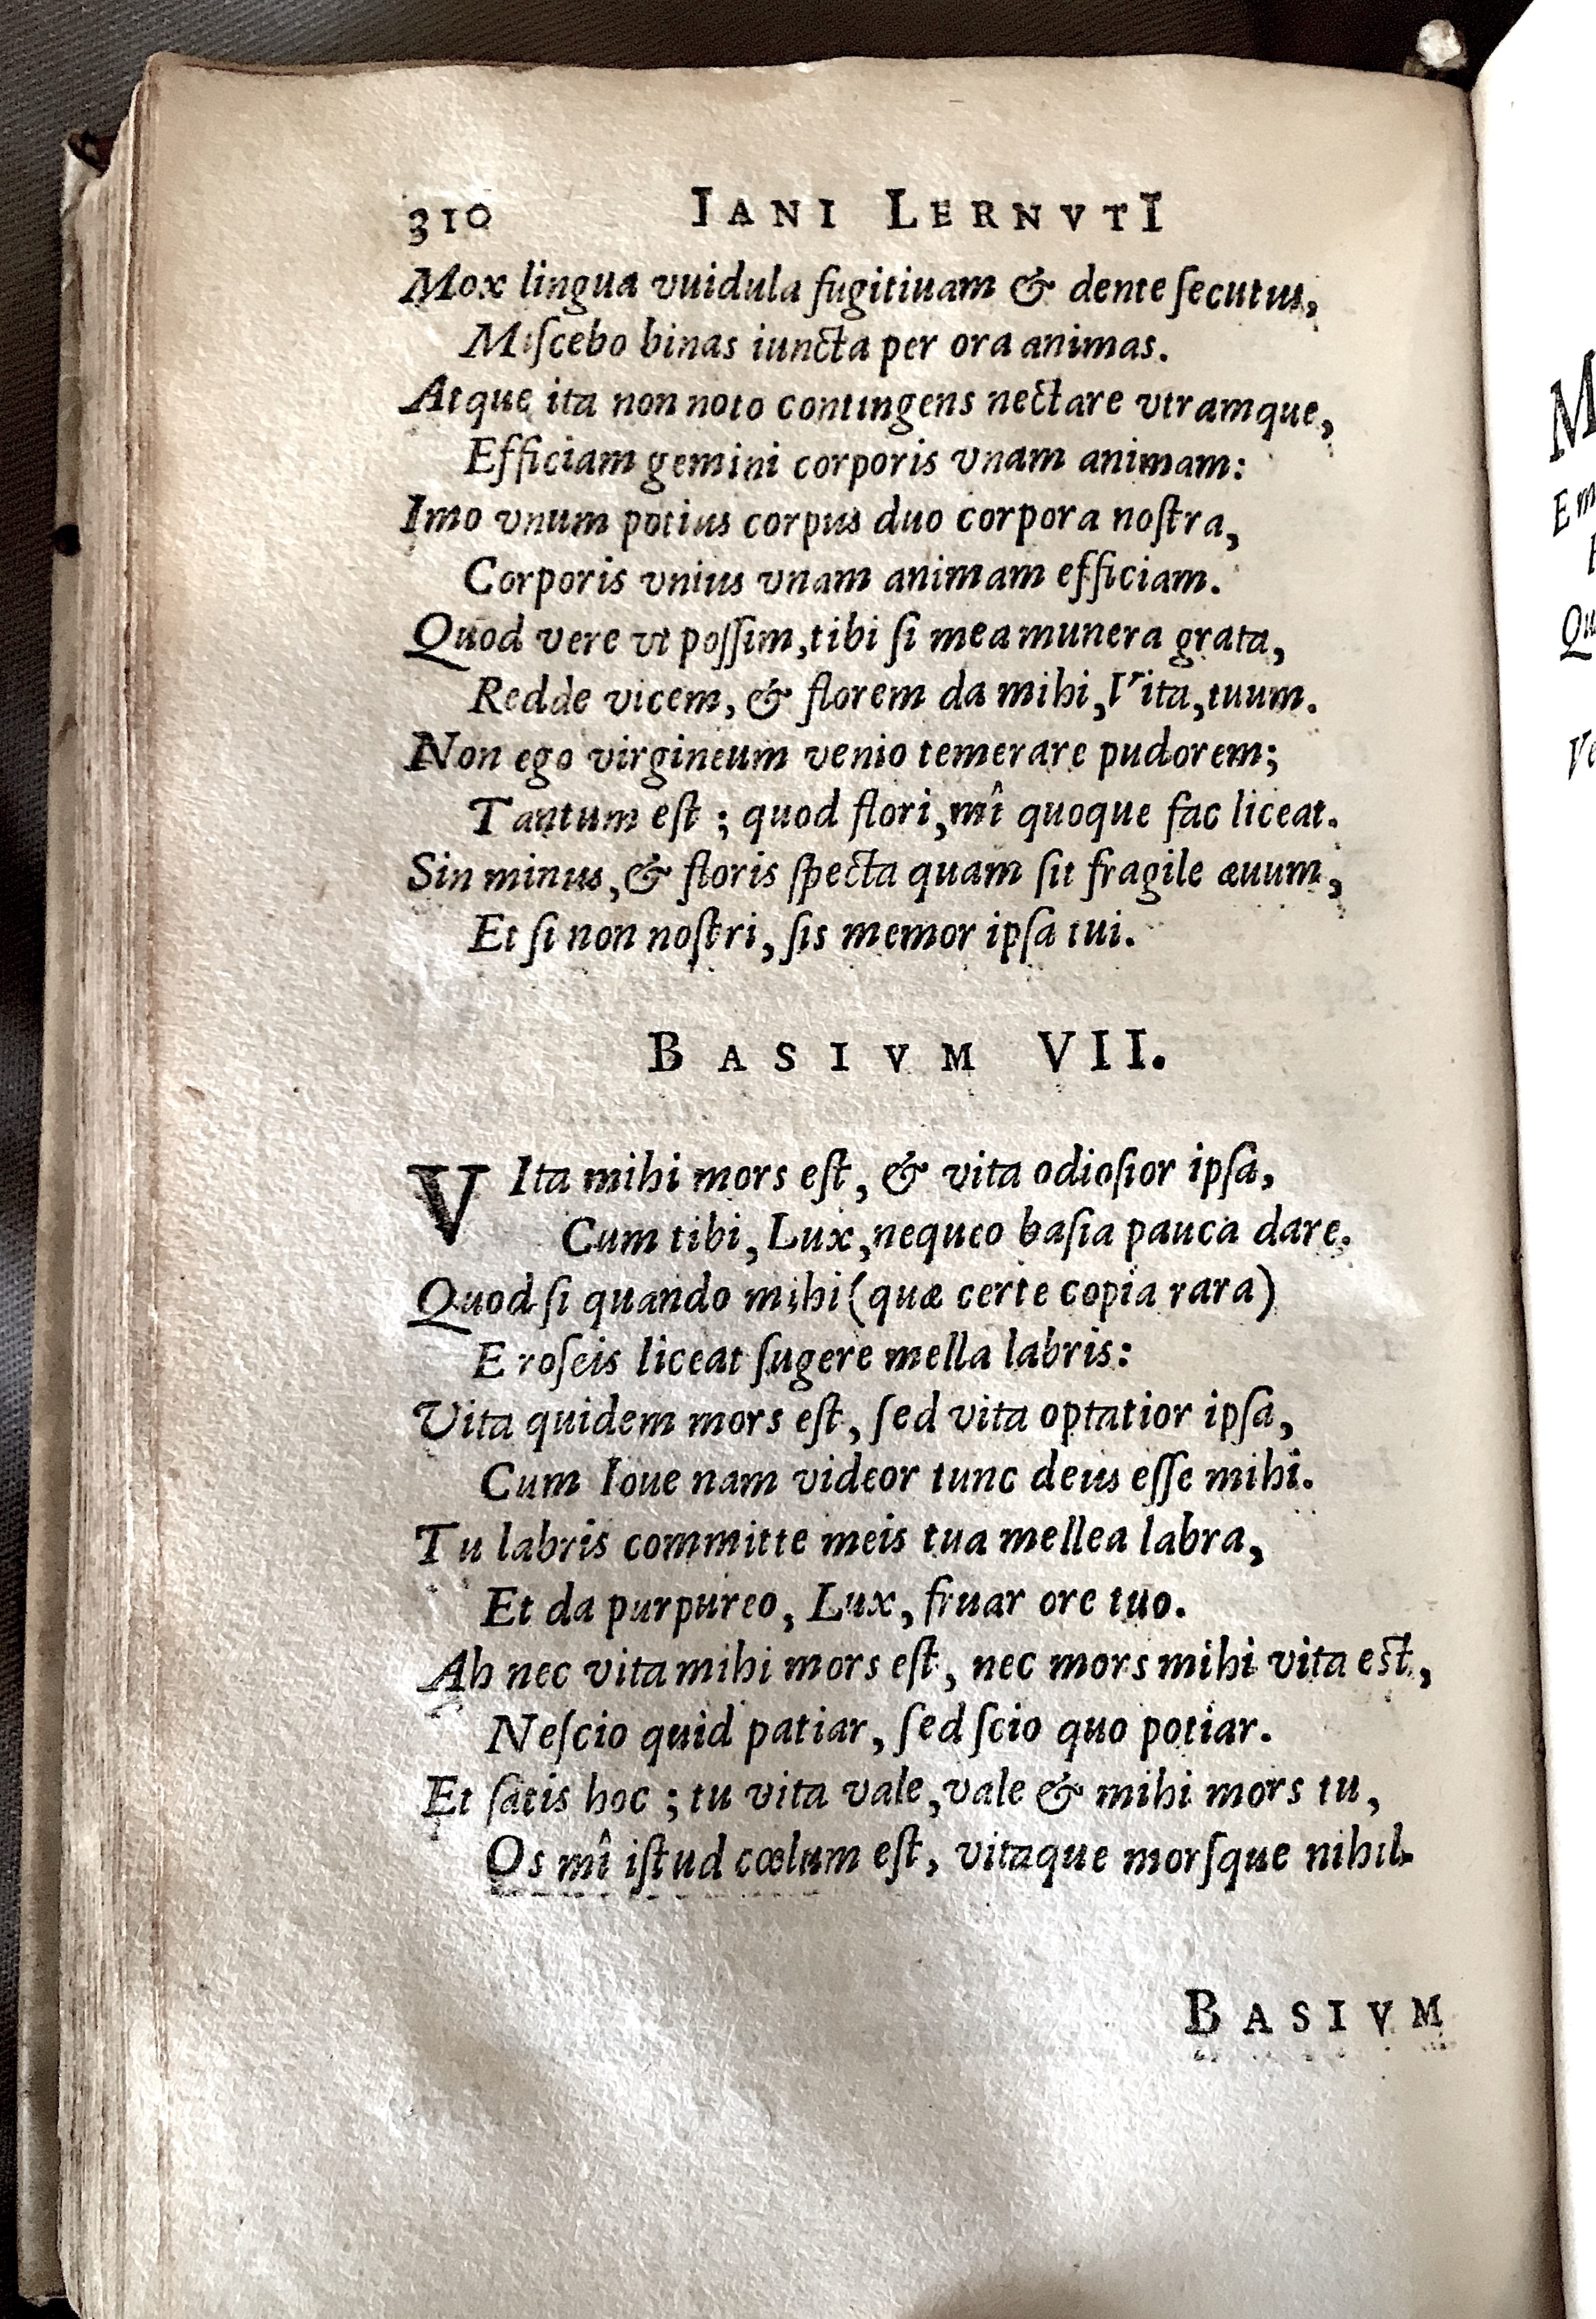 310 IANI LERNVTI
Mox lingua vuidula fugitiuam & dente ſecutus,
Miſcebo binas iuncta per ora animas.
Atque ita non noto contingens nectare vtramque,
Efficiam gemini corporis vnam animam:
Imo vnum potius corpus duo corpora noſtra,
Corporis vnius vnam animam efficiam.
Quod vere vt poſſim, tibi ſi mea munera grata,
Redde vicem, & florem da mihi, Vita, tuum.
Non ego virgineum venio temerare pudorem;
Tantum eſt ; quod flori, mî quoque fac liceat.
Sin minus, & floris ſpecta quam ſit fragile æuum,
Et ſi non noſtri, ſis memor ipſa tui.
BASIVM VII.
VIta mihi mors eſt, & vita odioſior ipſa,
Cum tibi, Lux, nequeo baſia pauca dare.
Quod ſi quando mihi (quæ certe copia rara)
E roſeis liceat ſugere mella labris:
Vita quidem mors eſt, ſed vita optatior ipſa,
Cum Ioue nam videor tunc deus eſſe mihi.
Tu labris committe meis tua mellea labra,
Et da purpureo, Lux, fruar ore tuo.
Ah nec vita mihi mors eſt, nec mors mihi vita eſt,
Neſcio quid patiar, ſed ſcio quo potiar.
Et ſatis hoc ; tu vita vale, vale & mihi mors tu,
Os mî iſtud cœlum eſt, vitaque morſque nihil.
BASIVM